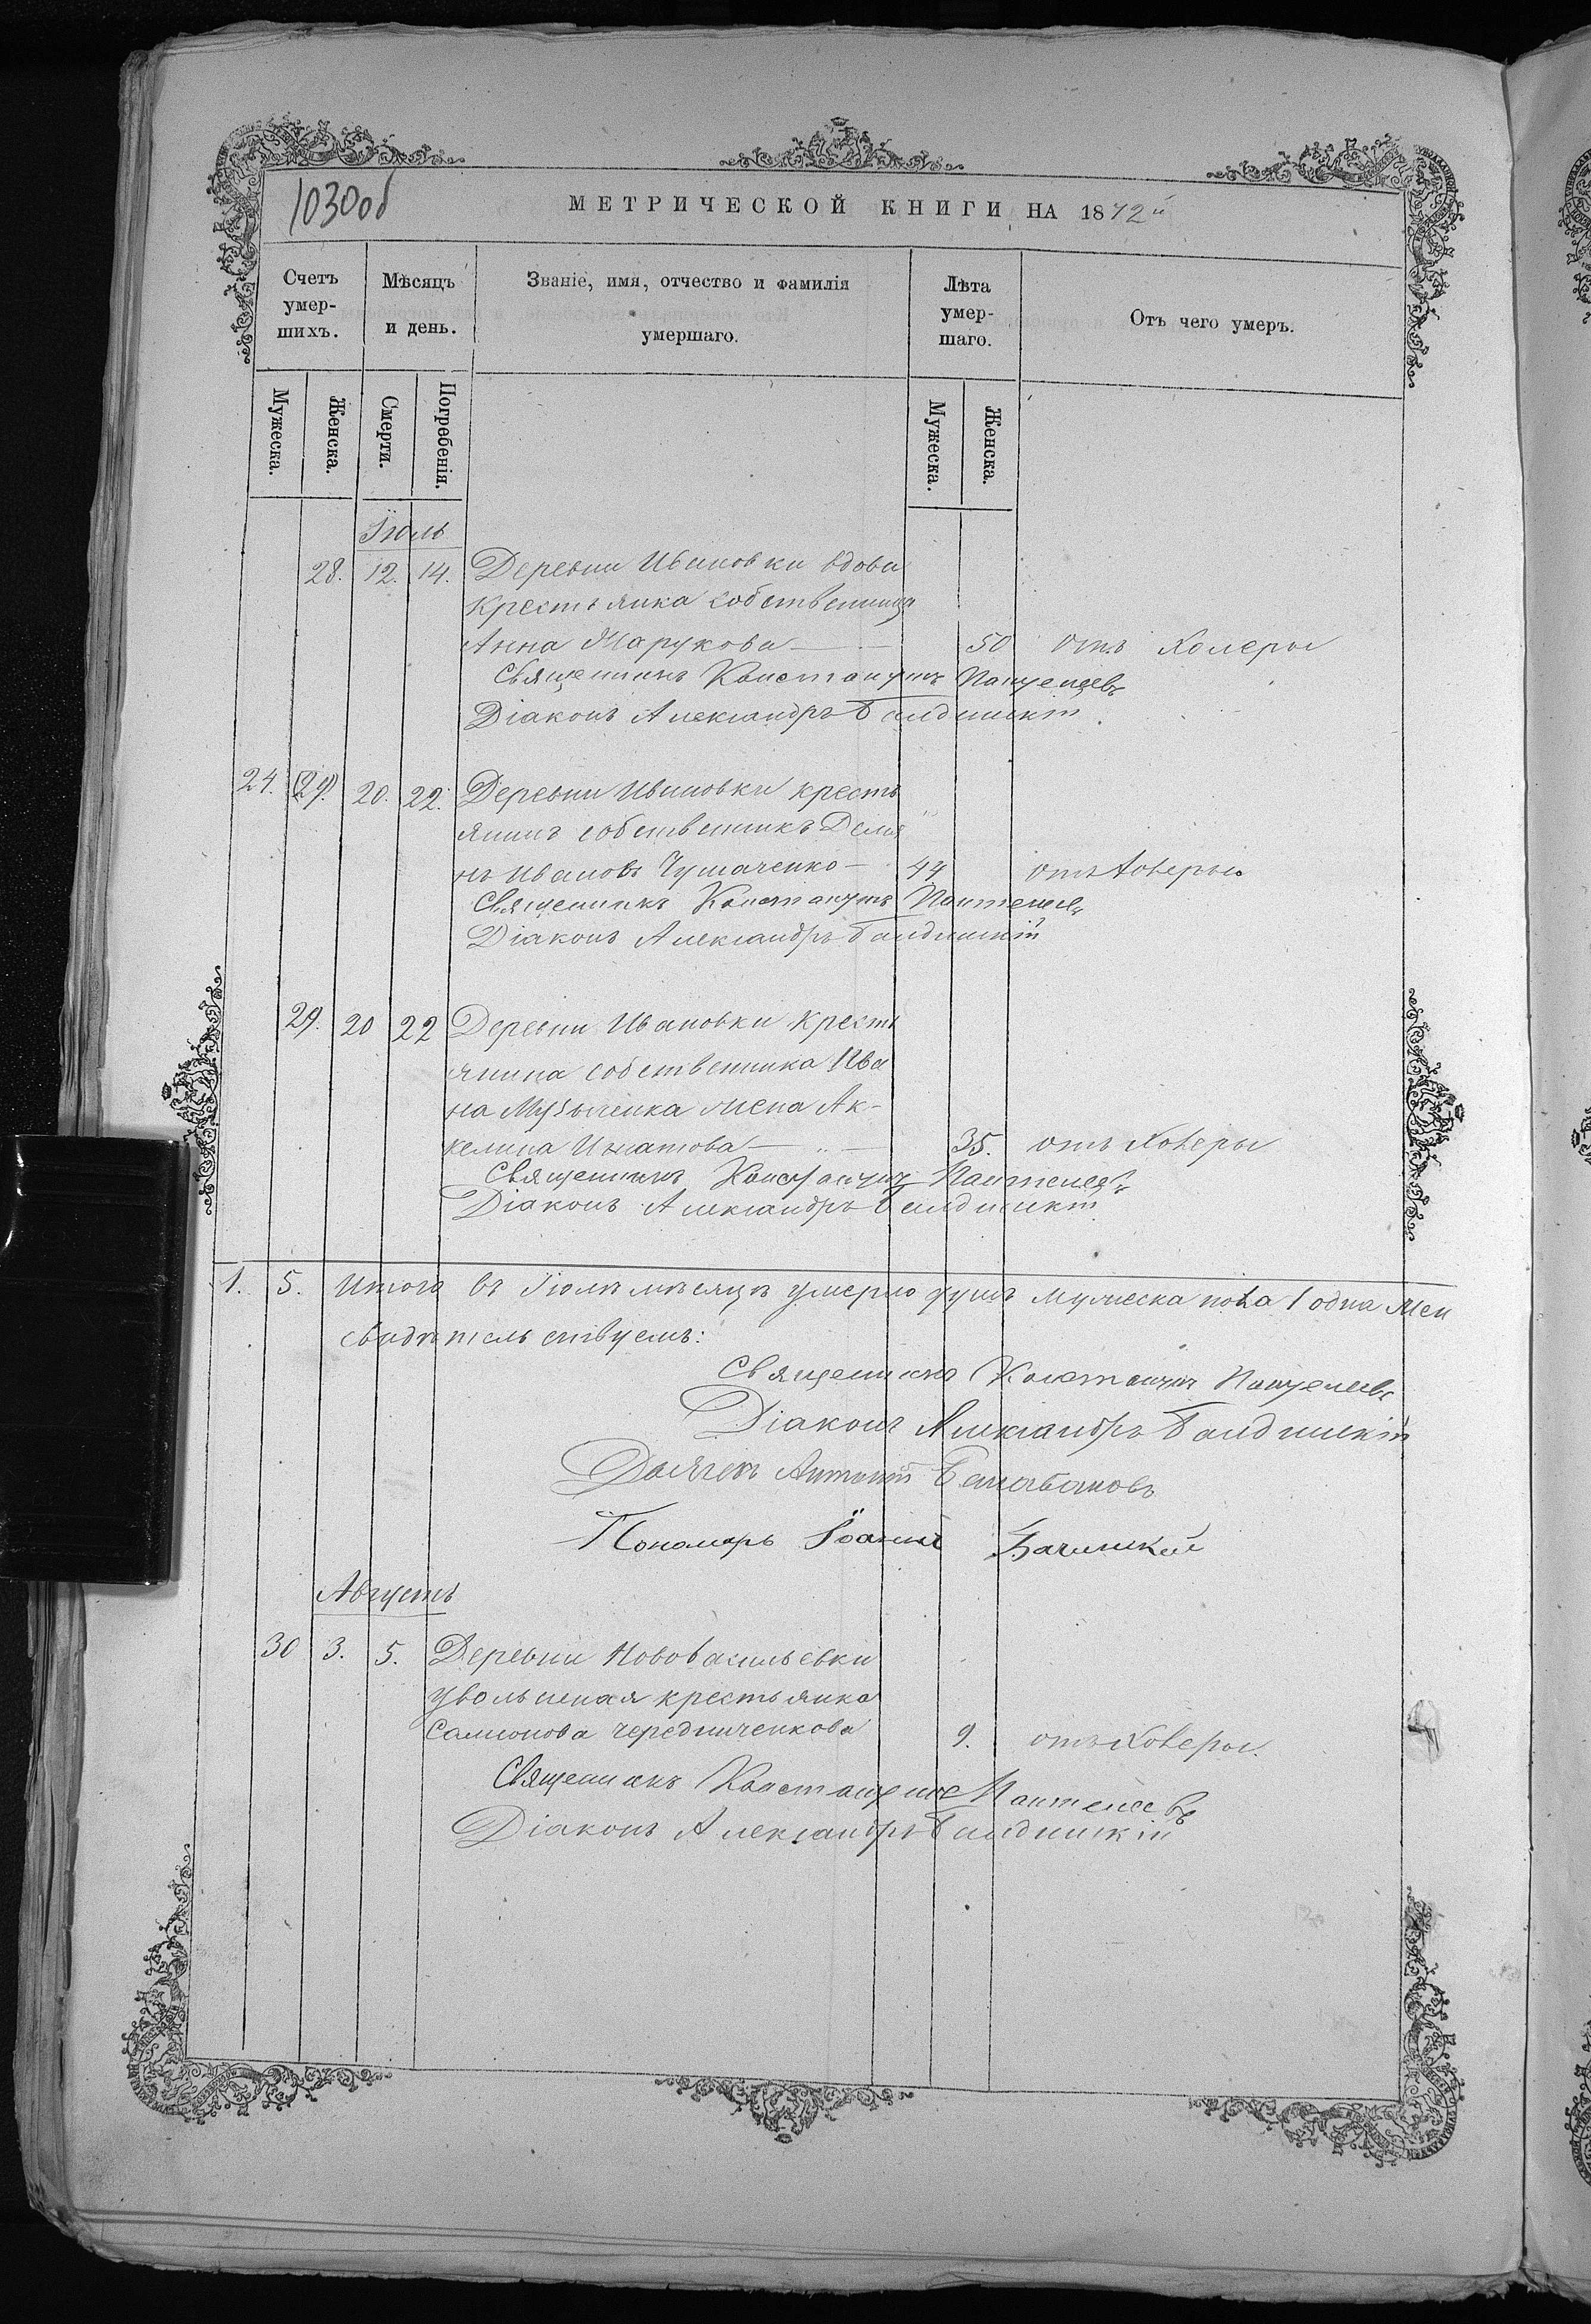 1030об
МЕТРИЧЕСКОЙ КНИГИ НА 1872й
Счетъ умершихъ.
Мѣсяцъ и день.
Званіе, имя, отчество и фамилія умершаго.
Лѣта умершаго.
Отъ чего умеръ.
Мужеска.
Женска.
Смерти.
Погребенія.
Мужеска.
Женска.
Іюль
28. 12. 14. Деревни Ивановки вдова
крестьянка собственница
Анна Марукова 50 отъ холеры
Священникъ Константинъ Пантелеевъ
Діаконъ Александръ
24. (29). 20. 22. Деревни Ивановки кресть
янинъ собственникъ Демя
нъ Ивановъ Чумаченко 44 отъ холеры
Священникъ Константинъ Пантелеевъ
Діаконъ Александръ
29. 20 22 Деревни Ивановки кресть
янина собственника Ива
на Музыченка жена Ак-
келина Игнатова 35. отъ холеры
Священникъ Константинъ Пантелеевъ
Діаконъ Александръ
1. 5. Итого въ Іюлѣ мѣсяцѣ умерло душъ мужеска пола 1 одна жен
свидѣтельствуемъ:
Священникъ Константинъ Пантелеевъ
Діаконъ Александръ
Дьячекъ Антоній Балабановъ
Пономарь Іоаннъ Бачинскій
Августъ
30 3. 5. Деревни Нововасильевки
увольненая крестьянка
Самсонова Чередниченкова 9. отъ холеры.
Священникъ Константинъ Пантелеевъ
Діаконъ Александръ